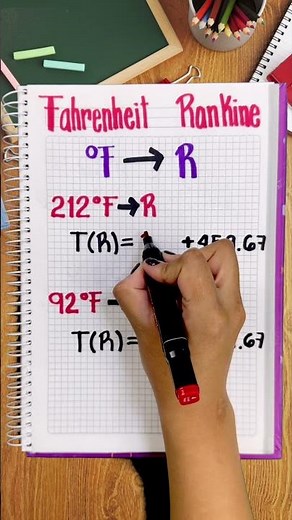 Fahrenheit Rankine
°F → R
212°F → R
T(R)= +459.67
92°F
T(R)= .67